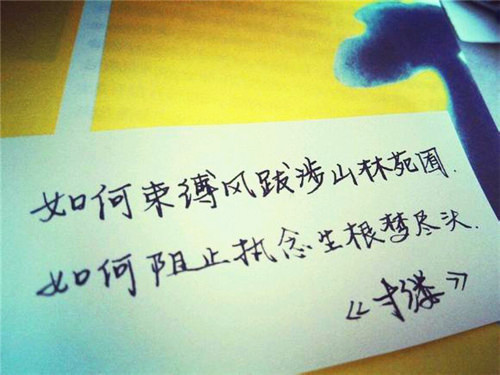 如何束缚风跋涉山林苑囿.
如何阻止执念生根梦尽头.